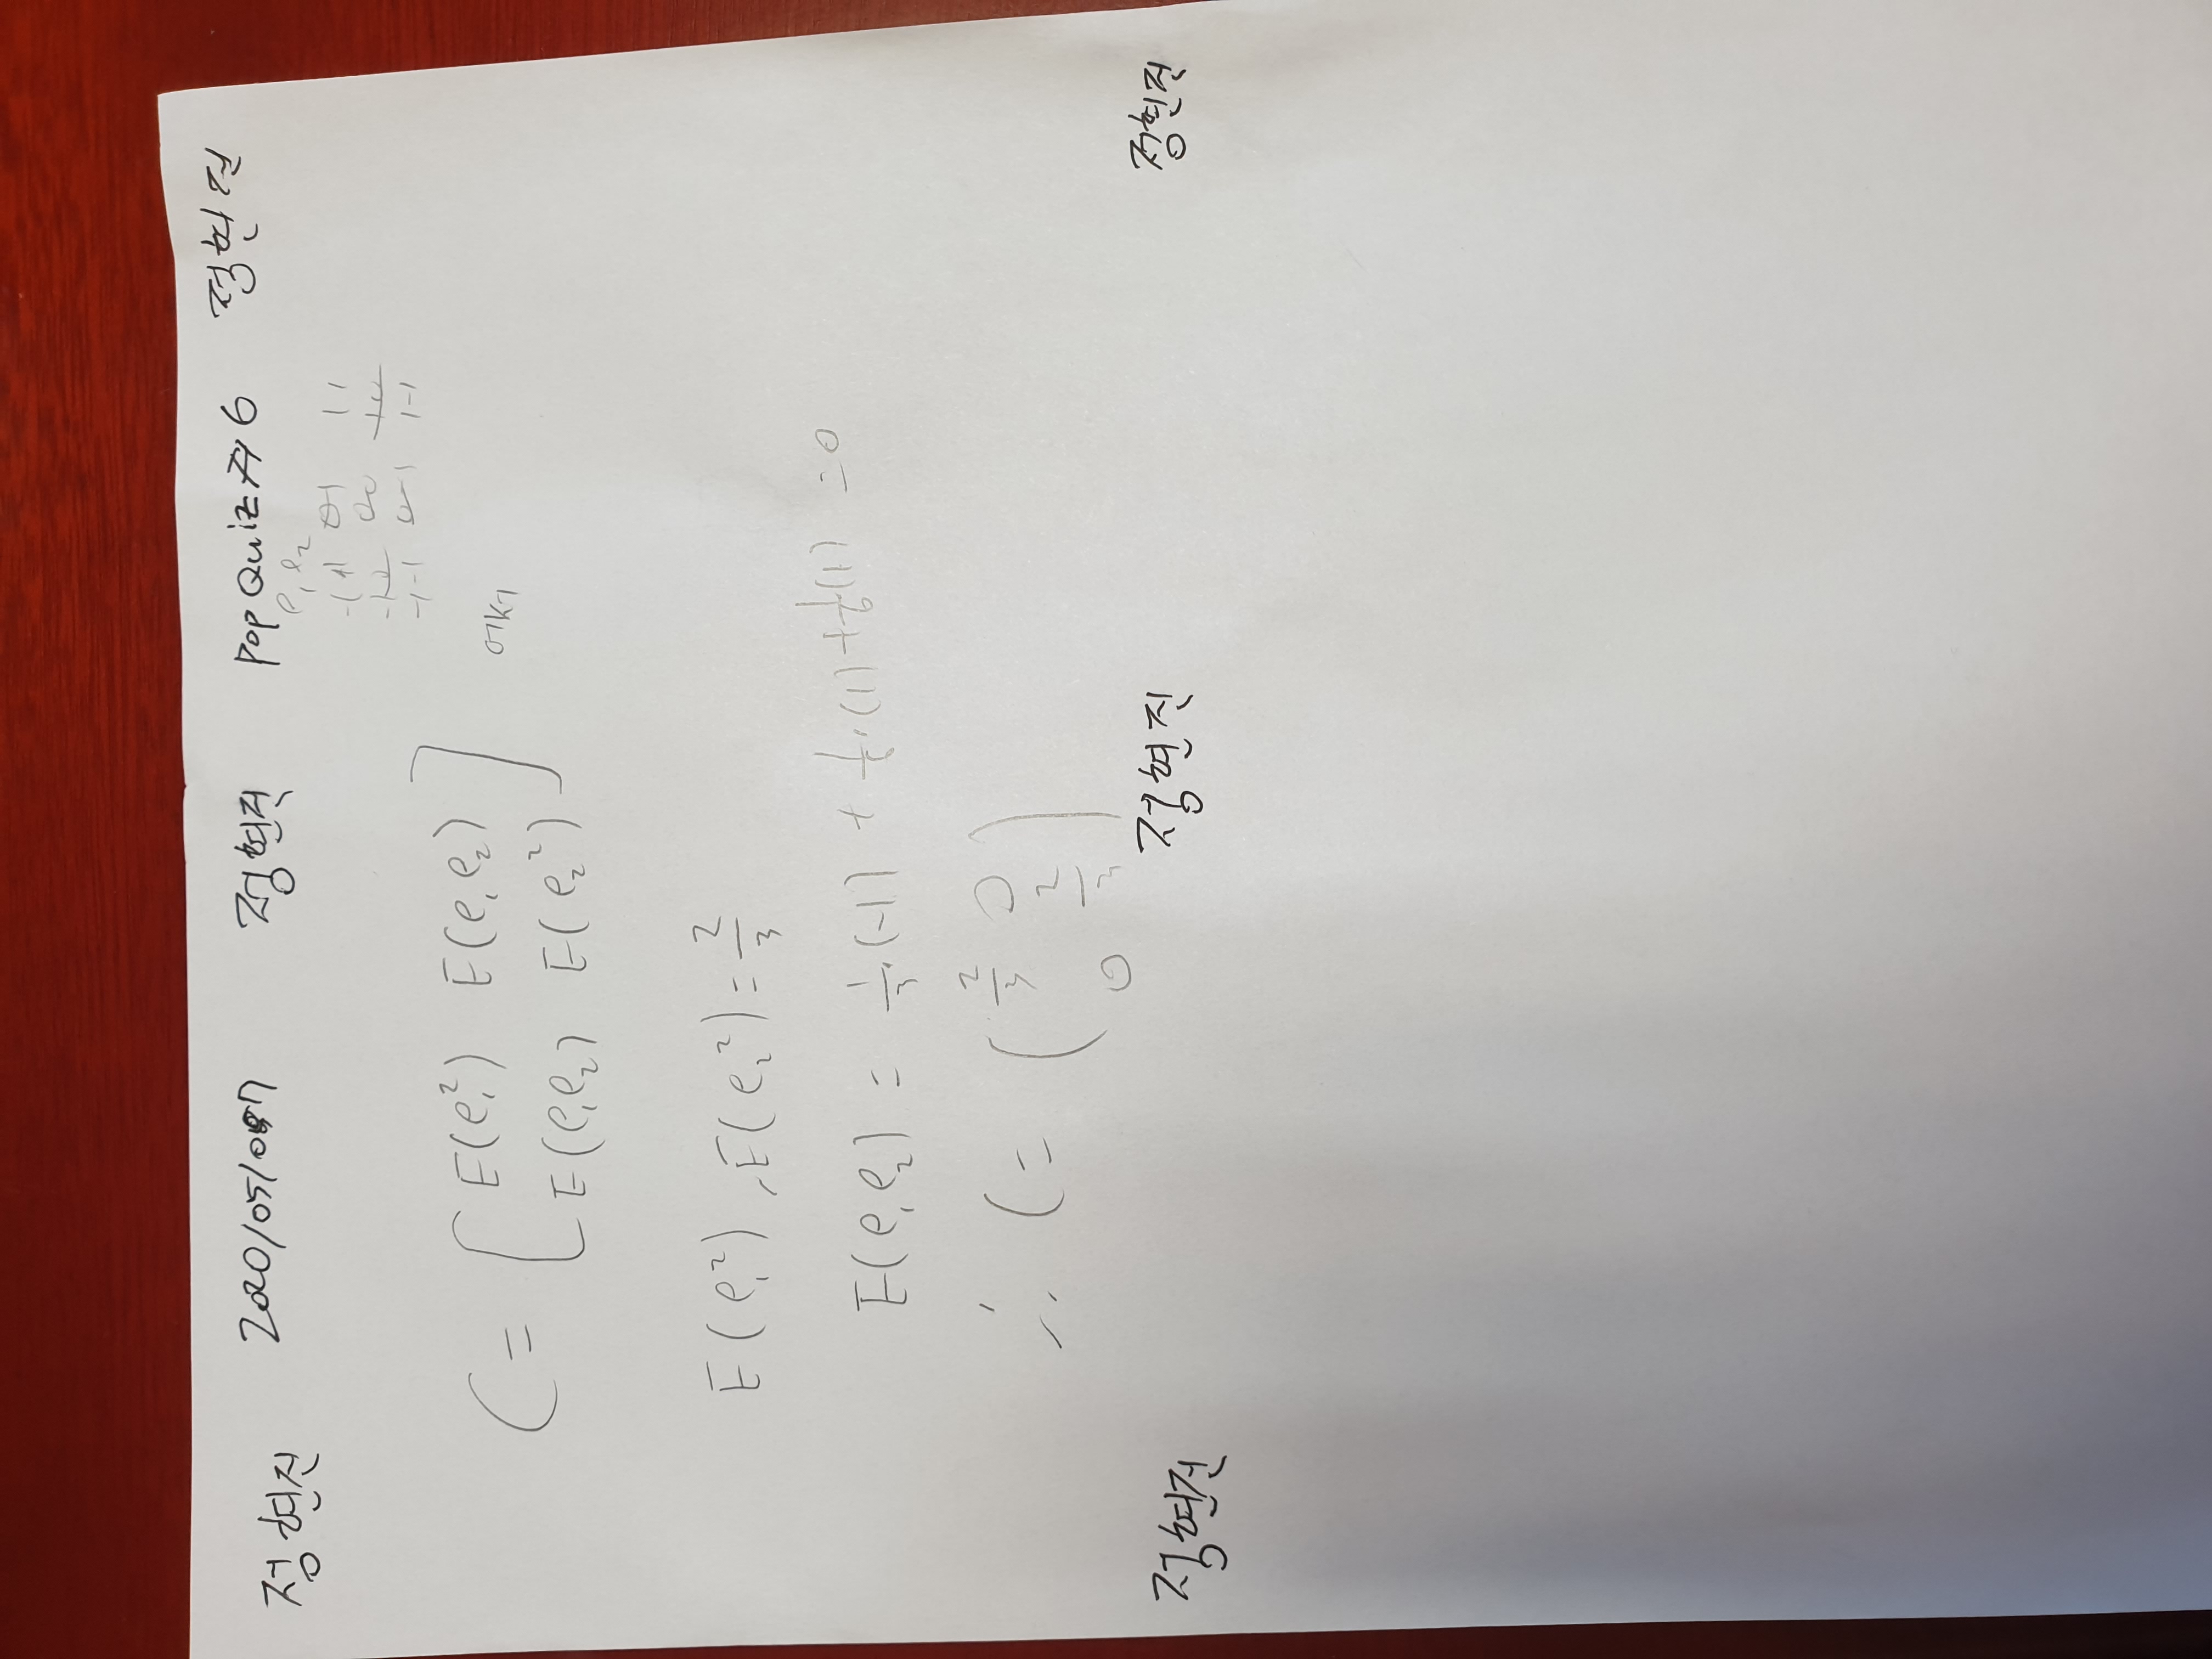 정현진 2020/05/07 정현진 Pop Quiz #6 정현진
e₁ e₂
-1 1 0 1 1 1
-1 0 0 0 1 0
-1 -1 0 -1 1 -1
C = [ E(e₁²) E(e₁e₂)
E(e₁e₂) E(e₂²) ]
E(e₁²), E(e₂²) = 2/3
E(e₁e₂) = 1/3·(-1) + 1/6·(1) + 1/6(1) = 0
∴ C = ( 2/3 0
0 2/3 )
정현진 정현진 정현진